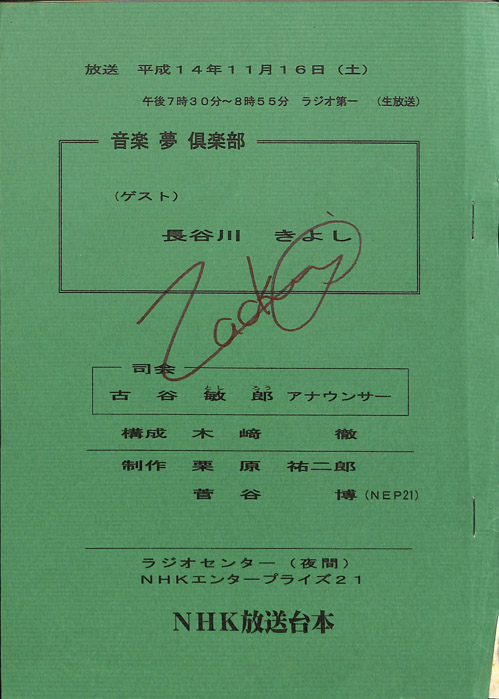 放送 平成14年11月16日(土)
午後7時30分〜8時55分 ラジオ第一 (生放送)
音楽 夢 倶楽部
(ゲスト)
長谷川 きよし
司会
とし ろう
古谷 敏郎 アナウンサー
構成 木﨑 徹
制作 栗原 祐二郎
菅谷 博(NEP21)
ラジオセンター(夜間)
NHKエンタープライズ21
NHK放送台本